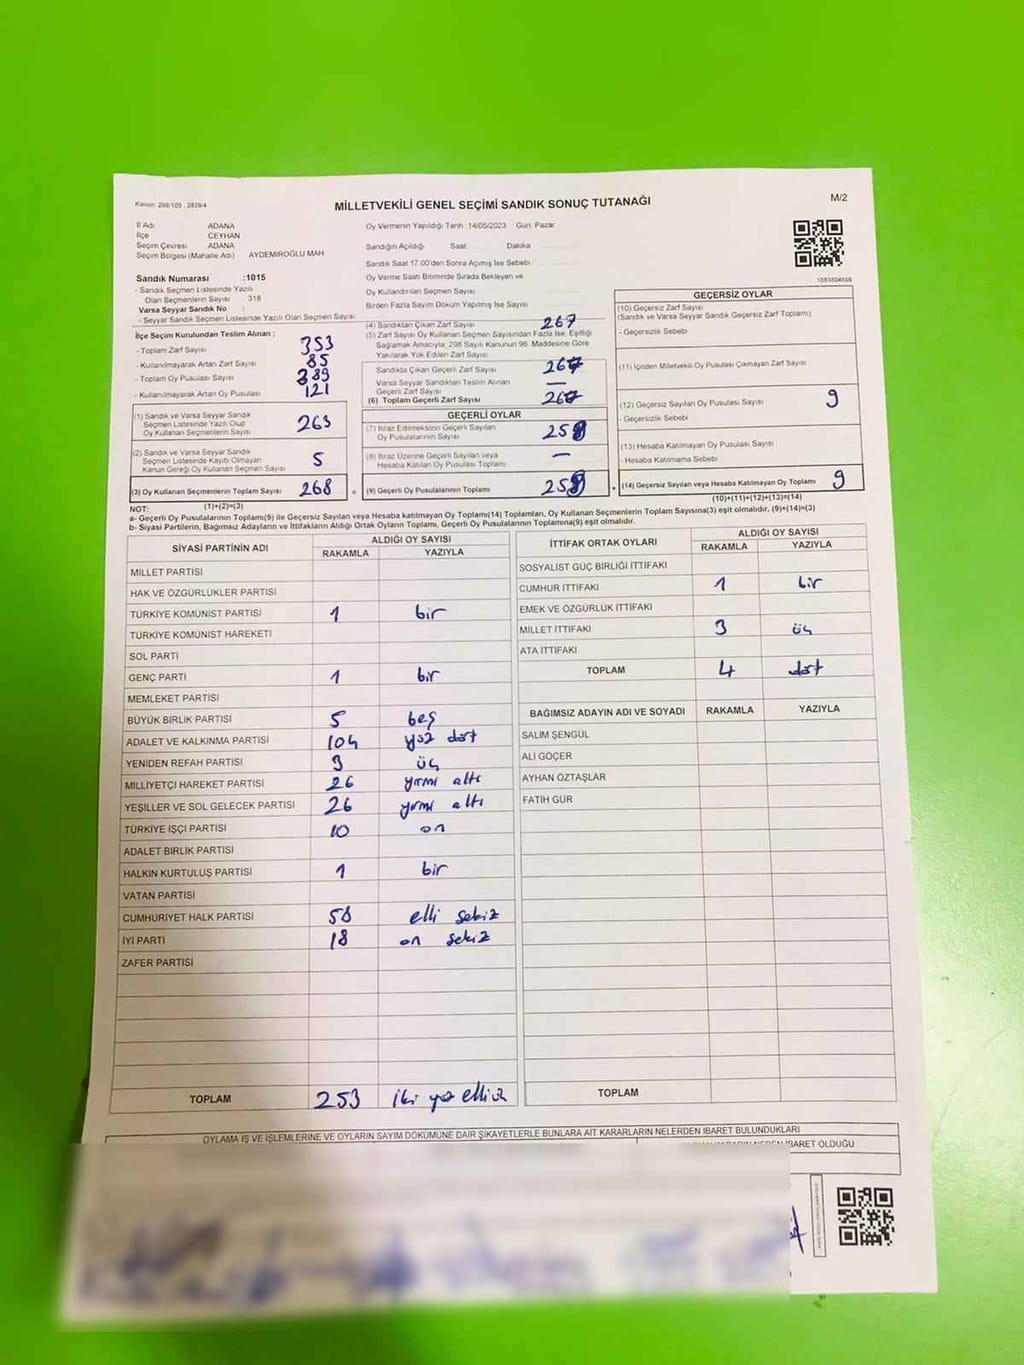 Kanun: 298/105 , 2839/4
MİLLETVEKİLİ GENEL SEÇİMİ SANDIK SONUÇ TUTANAĞI
M/2
İl Adı ADANA
İlçe CEYHAN
Seçim Çevresi ADANA
Seçim Bölgesi (Mahalle Adı) AYDEMİROĞLU MAH
Sandık Numarası :1015
- Sandık Seçmen Listesinde Yazılı
Olan Seçmenlerin Sayısı 318
Varsa Seyyar Sandık No :
- Seyyar Sandık Seçmen Listesinde Yazılı Olan Seçmen Sayısı
Oy Vermenin Yapıldığı Tarih 14/05/2023 Gün: Pazar
Sandığın Açıldığı Saat Dakika
Sandık Saat 17.00'den Sonra Açılmış İse Sebebi
Oy Verme Saati Bitiminde Sırada Bekleyen ve
Oy Kullandırılan Seçmen Sayısı
Birden Fazla Sayım Döküm Yapılmış İse Sayısı
1083804698
İlçe Seçim Kurulundan Teslim Alınan ;
- Toplam Zarf Sayısı 353
- Kullanılmayarak Artan Zarf Sayısı 85
- Toplam Oy Pusulası Sayısı 389
- Kullanılmayarak Artan Oy Pusulası 121
(1) Sandık ve Varsa Seyyar Sandık
Seçmen Listesinde Yazılı Olup
Oy Kullanan Seçmenlerin Sayısı 263
(2) Sandık ve Varsa Seyyar Sandık
Seçmen Listesinde Kayıtlı Olmayan
Kanun Gereği Oy Kullanan Seçmen Sayısı 5
(3) Oy Kullanan Seçmenlerin Toplam Sayısı 268
(1)+(2)=(3)
(4) Sandıktan Çıkan Zarf Sayısı 267
(5) Zarf Sayısı Oy Kullanan Seçmen Sayısından Fazla İse, Eşitliği
Sağlamak Amacıyla, 298 Sayılı Kanunun 98. Maddesine Göre
Yakılarak Yok Edilen Zarf Sayısı
Sandıkta Çıkan Geçerli Zarf Sayısı 267
Varsa Seyyar Sandıktan Teslim Alınan
Geçerli Zarf Sayısı —
(6) Toplam Geçerli Zarf Sayısı 267
GEÇERLİ OYLAR
(7) İtiraz Edilmeksizin Geçerli Sayılan
Oy Pusulalarının Sayısı
(8) İtiraz Üzerine Geçerli Sayılan veya
Hesaba Katılan Oy Pusulası Toplamı —
(9) Geçerli Oy Pusulalarının Toplamı
GEÇERSİZ OYLAR
(10) Geçersiz Zarf Sayısı
(Sandık ve Varsa Seyyar Sandık Geçersiz Zarf Toplamı)
- Geçersizlik Sebebi
(11) İçinden Milletvekili Oy Pusulası Çıkmayan Zarf Sayısı
(12) Geçersiz Sayılan Oy Pusulası Sayısı 9
- Geçersizlik Sebebi
(13) Hesaba Katılmayan Oy Pusulası Sayısı
- Hesaba Katılmama Sebebi
(14) Geçersiz Sayılan veya Hesaba Katılmayan Oy Toplamı 9
(10)+(11)+(12)+(13)=(14)
NOT:
a- Geçerli Oy Pusulalarının Toplamı(9) ile Geçersiz Sayılan veya Hesaba katılmayan Oy Toplamı(14) Toplamları, Oy Kullanan Seçmenlerin Toplam Sayısına(3) eşit olmalıdır, (9)+(14)=(3)
b- Siyasi Partilerin, Bağımsız Adayların ve İttifakların Aldığı Ortak Oyların Toplamı, Geçerli Oy Pusulalarının Toplamına(9) eşit olmalıdır.
SİYASİ PARTİNİN ADI ALDIĞI OY SAYISI
RAKAMLA YAZIYLA
MİLLET PARTİSİ
HAK VE ÖZGÜRLÜKLER PARTİSİ
TÜRKİYE KOMÜNİST PARTİSİ 1 bir
TÜRKİYE KOMÜNİST HAREKETİ
SOL PARTİ
GENÇ PARTİ 1 bir
MEMLEKET PARTİSİ
BÜYÜK BİRLİK PARTİSİ 5 beş
ADALET VE KALKINMA PARTİSİ 104 yüz dört
YENİDEN REFAH PARTİSİ 3 üç
MİLLİYETÇİ HAREKET PARTİSİ 26 yirmi altı
YEŞİLLER VE SOL GELECEK PARTİSİ 26 yirmi altı
TÜRKİYE İŞÇİ PARTİSİ 10 on
ADALET BİRLİK PARTİSİ
HALKIN KURTULUŞ PARTİSİ 1 bir
VATAN PARTİSİ
CUMHURİYET HALK PARTİSİ 58 elli sekiz
İYİ PARTİ 18 on sekiz
ZAFER PARTİSİ
TOPLAM 253 iki yüz elli üç
İTTİFAK ORTAK OYLARI ALDIĞI OY SAYISI
RAKAMLA YAZIYLA
SOSYALİST GÜÇ BİRLİĞİ İTTİFAKI
CUMHUR İTTİFAKI 1 bir
EMEK VE ÖZGÜRLÜK İTTİFAKI
MİLLET İTTİFAKI 3 üç
ATA İTTİFAKI
TOPLAM 4 dört
BAĞIMSIZ ADAYIN ADI VE SOYADI RAKAMLA YAZIYLA
SALİM ŞENGÜL
ALİ GÖÇER
AYHAN ÖZTAŞLAR
FATİH GÜR
TOPLAM
OYLAMA İŞ VE İŞLEMLERİNE VE OYLARIN SAYIM DÖKÜMÜNE DAİR ŞİKAYETLERLE BUNLARA AİT KARARLARIN NELERDEN İBARET BULUNDUKLARI
İBARET OLDUĞU